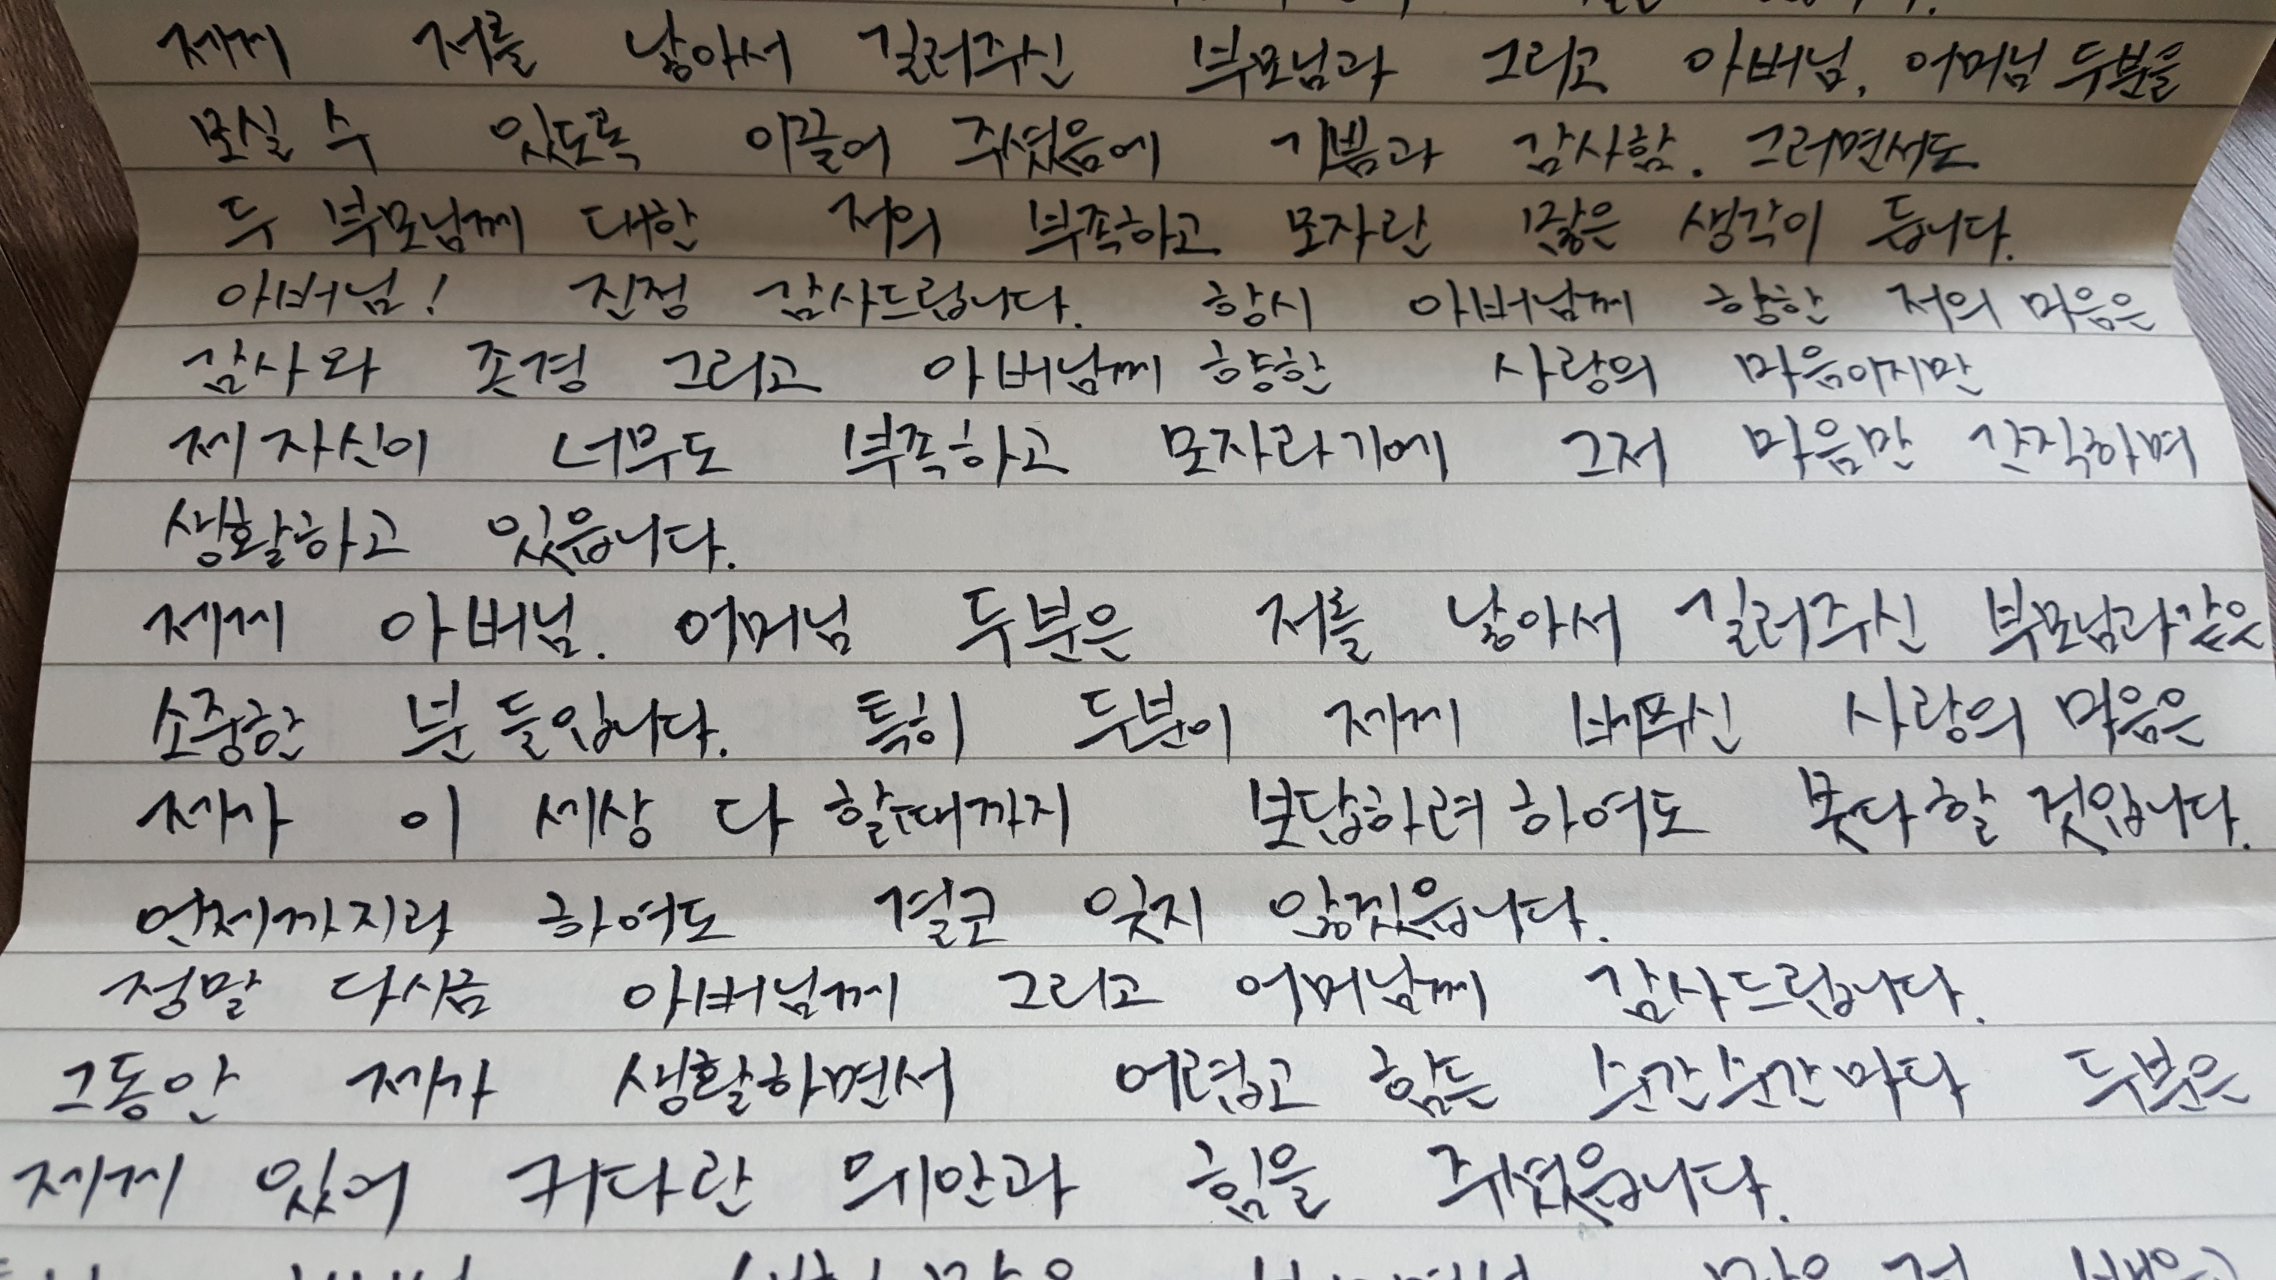 제게 저를 낳아서 길러주신 부모님과 그리고 아버님. 어머님 두분을
모실 수 있도록 이끌어 주셨음에 기쁨과 감사함. 그러면서도
두 부모님께 대한 저의 부족하고 모자란 많은 생각이 듭니다.
아버님! 진정 감사드립니다. 항시 아버님께 향한 저의 마음은
감사와 존경 그리고 아버님께 향한 사랑의 마음이지만
제 자신이 너무도 부족하고 모자라기에 그저 마음만 간직하며
생활하고 있읍니다.
제게 아버님. 어머님 두분은 저를 낳아서 길러주신 부모님과 같은
소중한 분들입니다. 특히 두분이 제게 베푸신 사랑의 마음은
제가 이 세상 다 할때까지 보답하려 하여도 못다할 것입니다.
언제까지라 하여도 결코 잊지 않겠읍니다.
정말 다시금 아버님께 그리고 어머님께 감사드립니다.
그동안 제가 생활하면서 어렵고 힘든 순간순간마다 두분은
제게 있어 커다란 위안과 힘을 주셨읍니다.